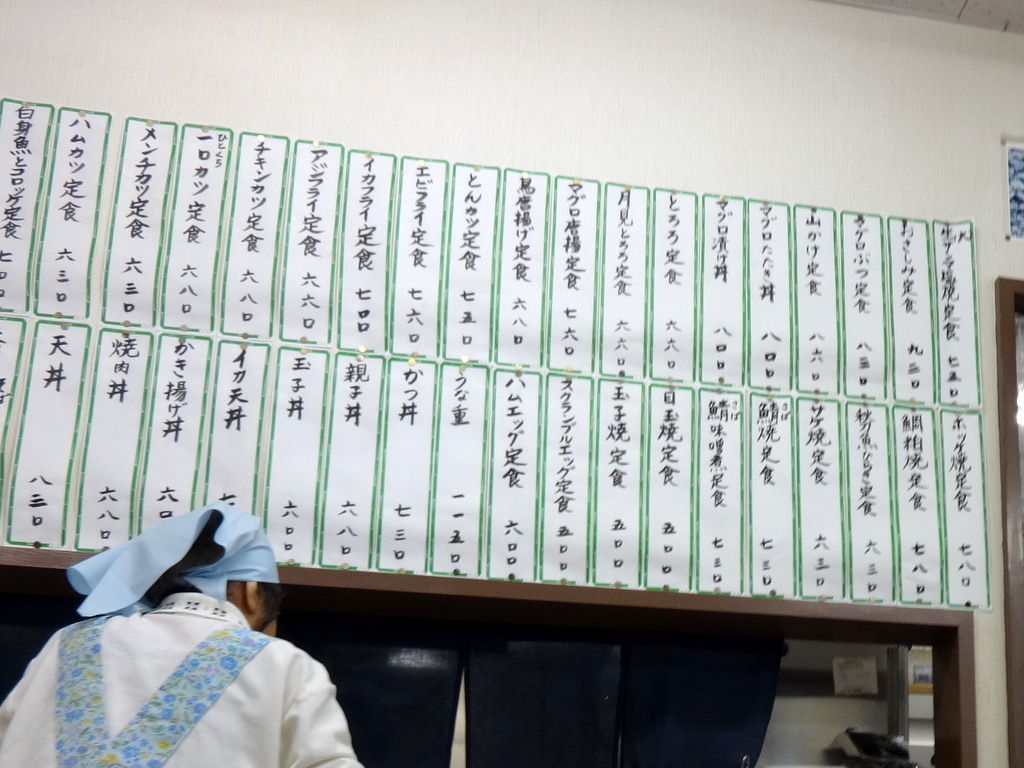 定食 七五〇
おさしみ定食 九三〇
マグロぶつ定食 八三〇
山かけ定食 八六〇
マグロたたき丼 八〇〇
マグロ漬け丼 八〇〇
とろろ定食 六六〇
月見とろろ定食 六六〇
マグロ唐揚定食 七六〇
鳥唐揚げ定食 六八〇
とんカツ定食 七五〇
エビフライ定食 七六〇
イカフライ定食 七〇〇
アジフライ定食 六六〇
チキンカツ定食 六八〇
一口カツ定食 六八〇
ひとくち
メンチカツ定食 六三〇
ハムカツ定食 六三〇
白身魚とコロッケ定食 七〇〇
ホッケ焼定食 七八〇
鯛粕焼定食 七八〇
秋刀魚ひらき定食 六三〇
サケ焼定食 六三〇
鯖焼定食 七三〇
さば
鯖味噌煮定食 七三〇
さば
目玉焼定食 五五〇
玉子焼定食 五〇〇
スクランブルエッグ定食 五〇〇
ハムエッグ定食 六〇〇
うな重 一一五〇
かつ丼 七三〇
親子丼 六八〇
玉子丼 六〇〇
イカ天丼 七
かき揚げ丼 六八〇
焼肉丼 六八〇
天丼 八三〇